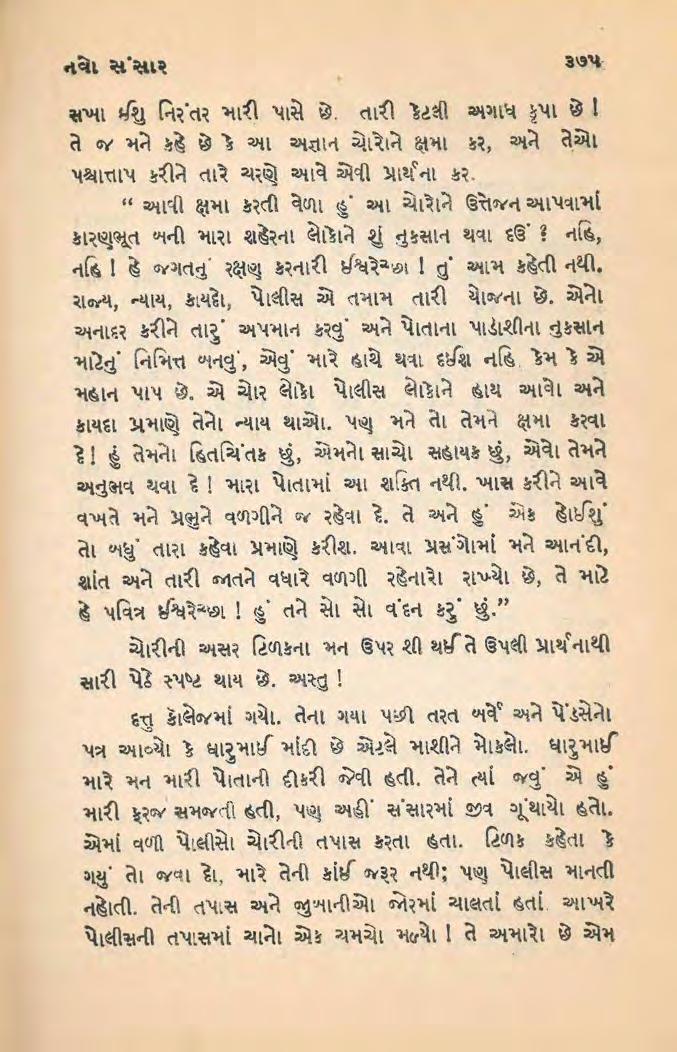 નવો સંસાર ૩૭૫
સખા ઈશુ નિરંતર મારી પાસે છે. તારી કેટલી અગાધ કૃપા છે !
તે જ મને કહે છે કે આ અજ્ઞાન ચોરોને ક્ષમા કર, અને તેઓ
પશ્ચાત્તાપ કરીને તારે ચરણે આવે એવી પ્રાર્થના કર.
“ આવી ક્ષમા કરતી વેળા હું આ ચોરોને ઉત્તેજન આપવામાં
કારણભૂત બની મારા શહેરના લોકોને શું નુકસાન થવા દઉં ? નહિ,
નહિ ! હે જગતનું રક્ષણ કરનારી ઈશ્વરેચ્છા ! તું આમ કહેતી નથી.
રાજ્ય, ન્યાય, કાયદો, પોલીસ એ તમામ તારી યોજના છે. એનો
અનાદર કરીને તારું અપમાન કરવું અને પોતાના પાડોશીના નુકસાન
માટેનું નિમિત્ત બનવું, એવું મારે હાથે થવા દઈશ નહિ. કેમ કે એ
મહાન પાપ છે. એ ચોર લોકો પોલીસ લોકોને હાથ આવો અને
કાયદા પ્રમાણે તેનો ન્યાય થાઓ. પણ મને તો તેમને ક્ષમા કરવા
દે! હું તેમનો હિતચિંતક છું, એમનો સાચો સહાયક છું, એવો તેમને
અનુભવ થવા દે ! મારા પોતામાં આ શક્તિ નથી. ખાસ કરીને આવે
વખતે મને પ્રભુને વળગીને જ રહેવા દે. તે અને હું એક હોઈશું
તો બધું તારા કહેવા પ્રમાણે કરીશ. આવા પ્રસંગોમાં મને આનંદી,
શાંત અને તારી જાતને વધારે વળગી રહેનારો રાખ્યો છે, તે માટે
હે પવિત્ર ઈશ્વરેચ્છા ! હું તને સો સો વંદન કરું છું.”
ચોરીની અસર ટિળકના મન ઉપર શી થઈ તે ઉપલી પ્રાર્થનાથી
સારી પેઠે સ્પષ્ટ થાય છે. અસ્તુ !
દત્તુ કૉલેજમાં ગયો. તેના ગયા પછી તરત બર્વે અને પેંડસેનો
પત્ર આવ્યો કે ધારુમાઈ માંદી છે એટલે માશીને મોકલો. ધારુમાઈ
મારે મન મારી પોતાની દીકરી જેવી હતી. તેને ત્યાં જવું એ હું
મારી ફરજ સમજતી હતી, પણ અહીં સંસારમાં જીવ ગૂંથાયો હતો.
એમાં વળી પોલીસો ચોરીની તપાસ કરતા હતા. ટિળક કહેતા કે
ગયું તો જવા દો, મારે તેની કાંઈ જરૂર નથી; પણ પોલીસ માનતી
નહોતી. તેની તપાસ અને જુબાનીઓ જોરમાં ચાલતાં હતાં. આખરે
પોલીસની તપાસમાં ચાનો એક ચમચો મળ્યો ! તે અમારો છે એમ